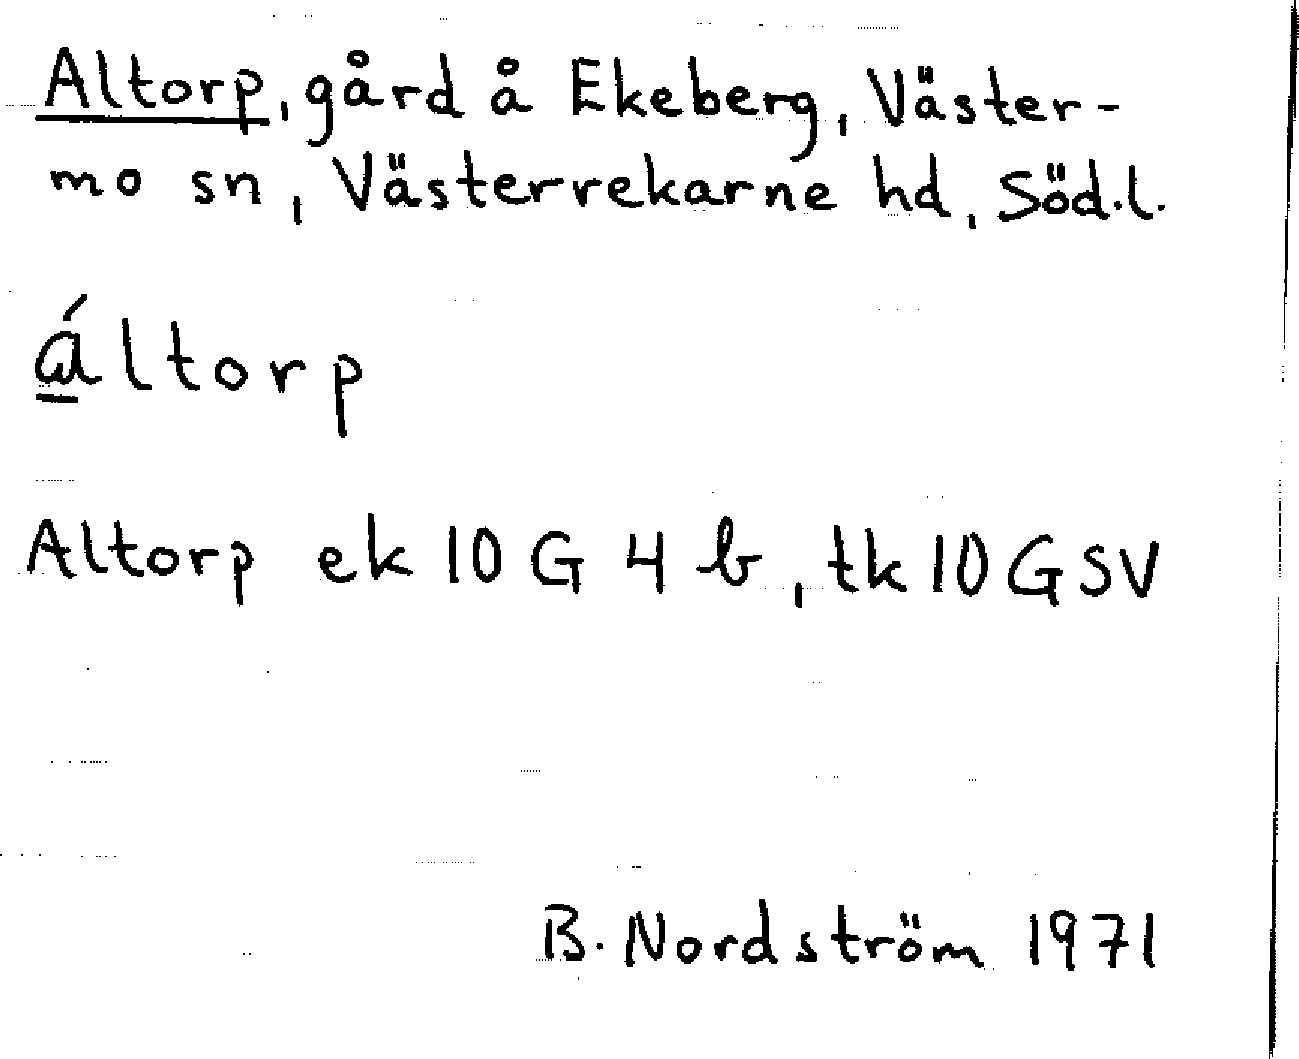 Altorp, gård å Ekeberg, Väster-
mo sn, Västerrekarne hd, Söd.l.
áltorp
Altorp ek 10 G 4 b, tk 10 G SV
B. Nordström 1971